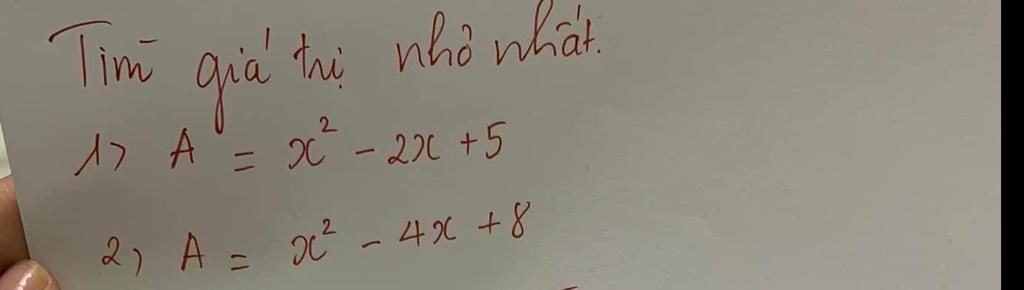 Tìm giá trị nhỏ nhất.
1> A = x² - 2x + 5
2) A = x² - 4x + 8